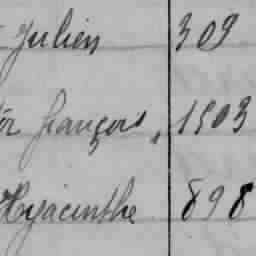 Julien 309
françois, 1503
Hyacinthe 898